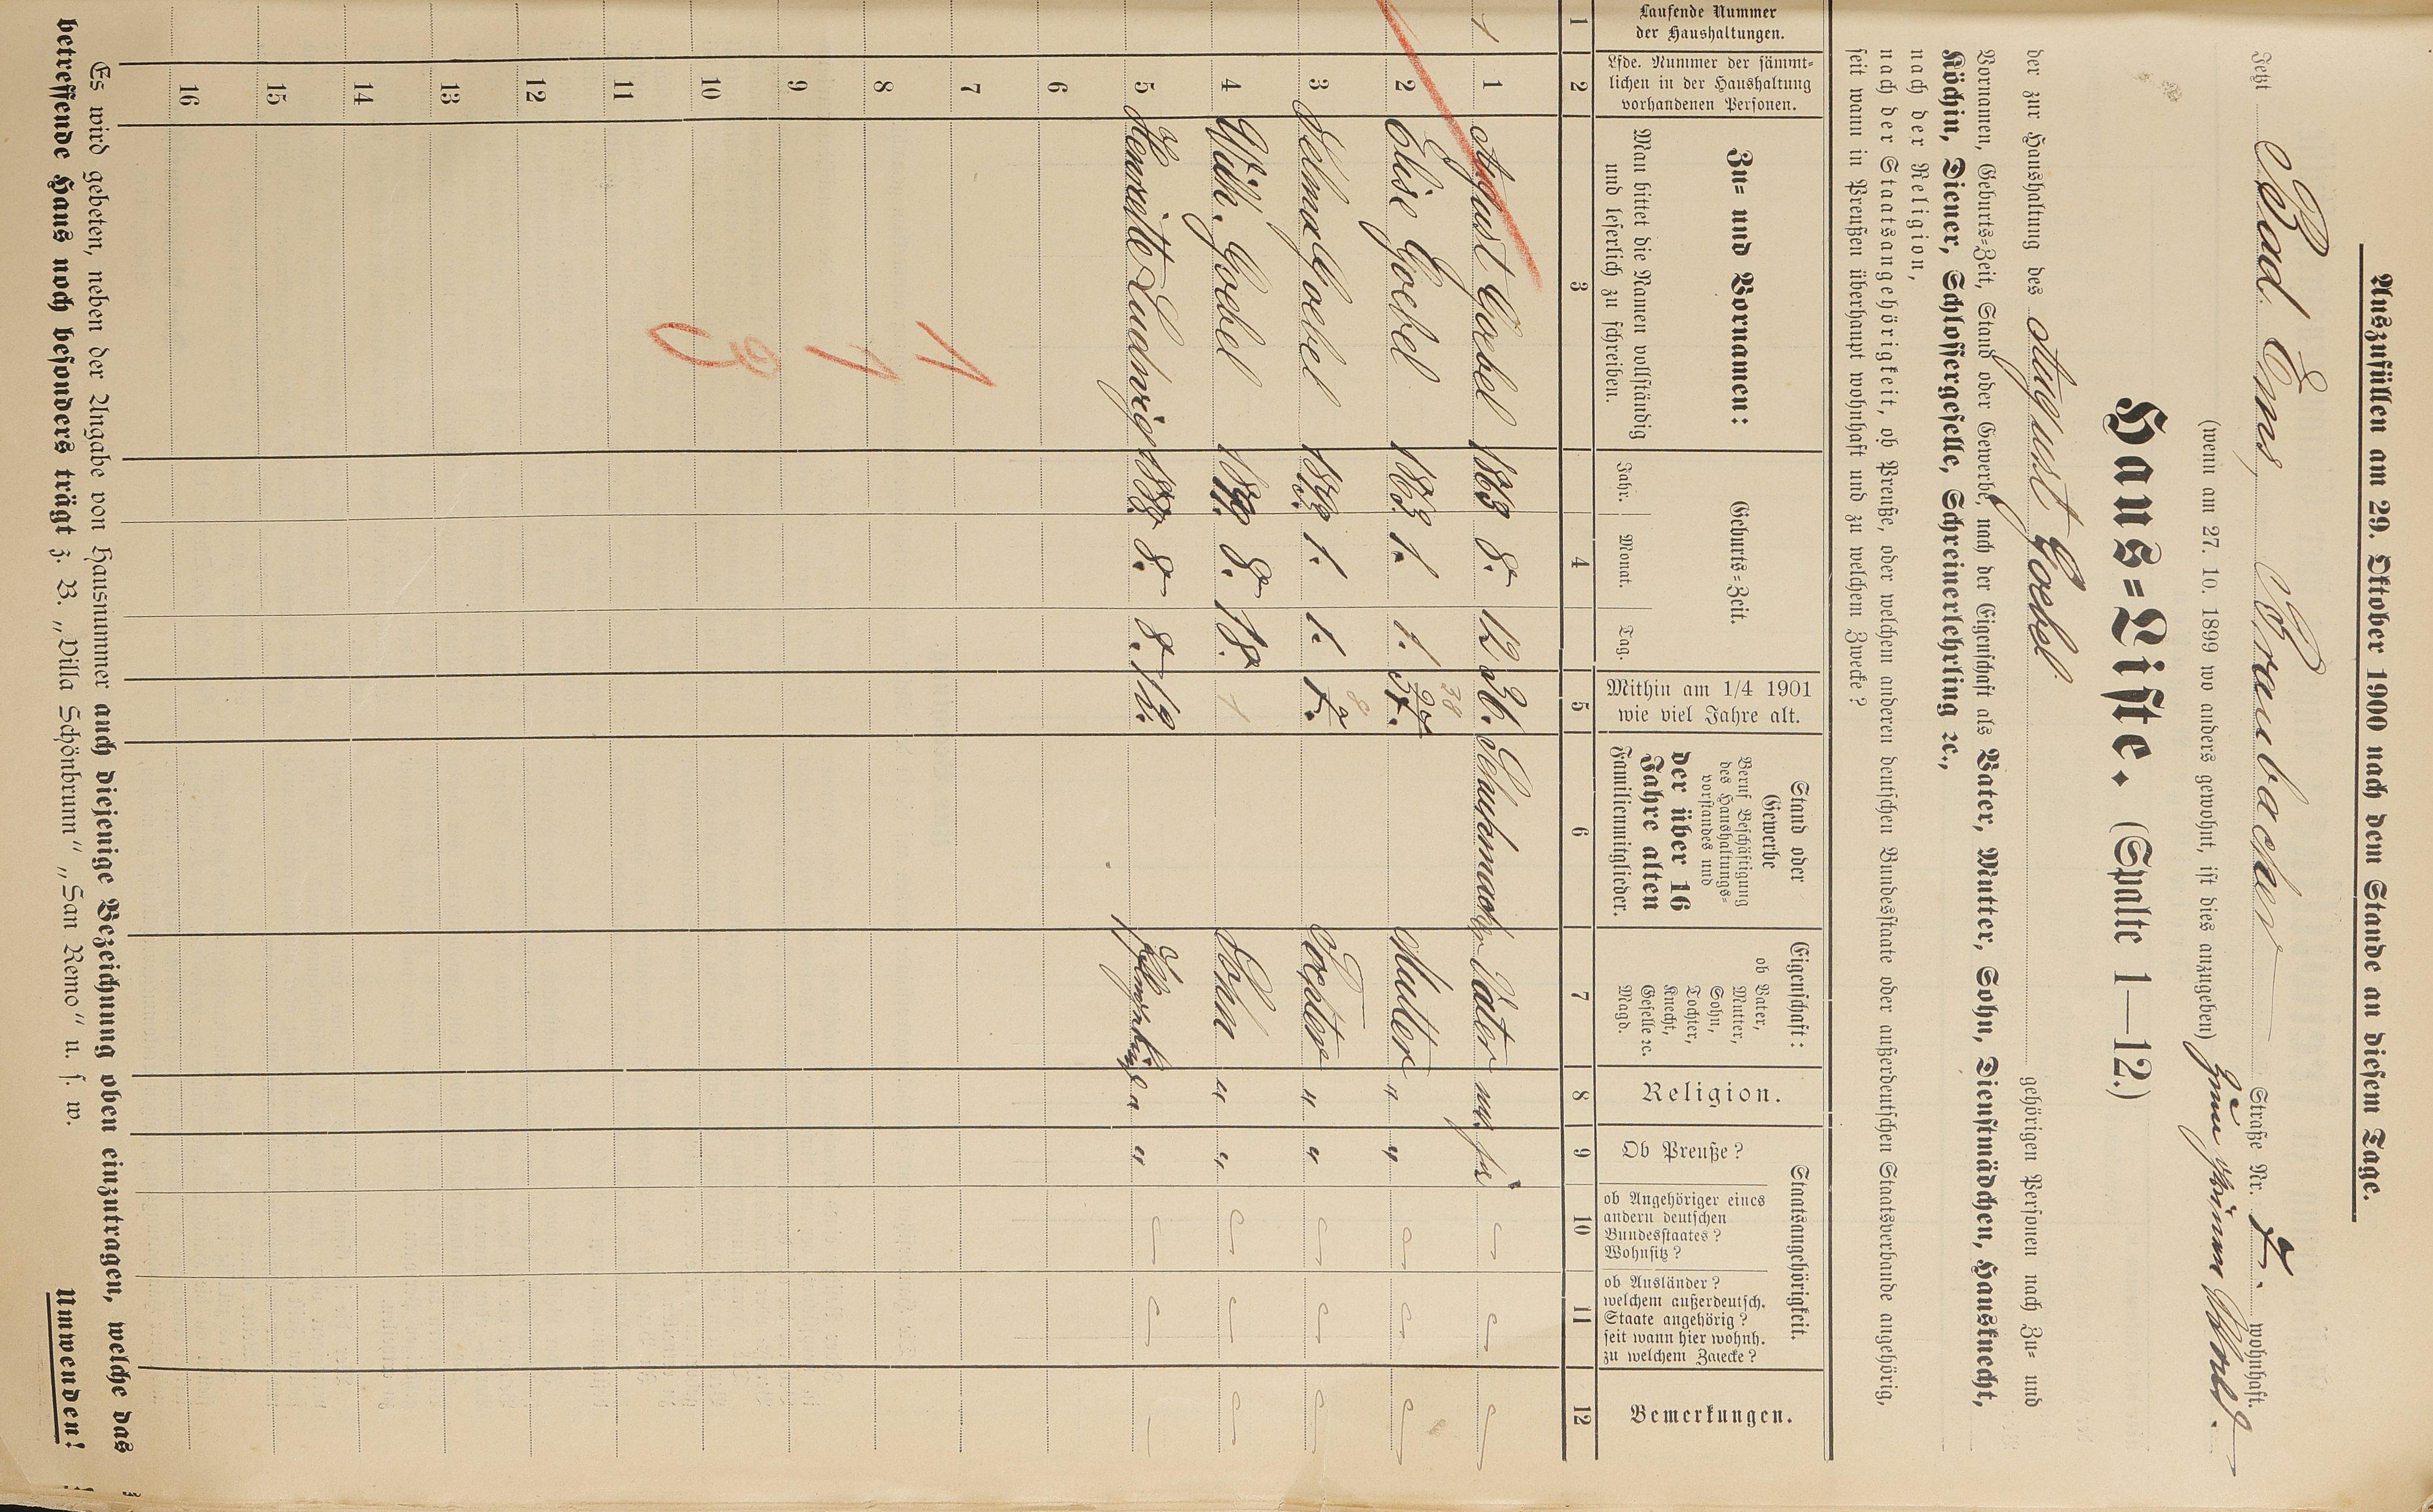 Auszufüllen am 29. Oktober 1900 nach dem Stande an diesem Tage.
Jetzt Bad Ems, Braubacher Straße Nr. 7. wohnhaft.
(wenn am 27. 10. 1899 wo anders gewohnt, ist dies anzugeben)
Haus=Liste. (Spalte 1—12.)
der zur Haushaltung des August Goebel gehörigen Personen nach Zu= und
Vornamen, Geburts=Zeit, Stand oder Gewerbe, nach der Eigenschaft als Vater, Mutter, Sohn, Dienstmädchen, Hausknecht,
Köchin, Diener, Schlossergeselle, Schreinerlehrling ꝛc.,
nach der Religion,
nach der Staatsangehörigkeit, ob Preuße, oder welchem anderen deutschen Bundesstaate oder außerdeutschen Staatsverbande angehörig,
seit wann in Preußen überhaupt wohnhaft und zu welchem Zwecke?
Laufende Nummer
der Haushaltungen.
Lfde. Nummer der sämmt=
lichen in der Haushaltung
vorhandenen Personen.
Zu= und Vornamen:
Man bittet die Namen vollständig
und leserlich zu schreiben.
Geburts=Zeit.
Jahr. Monat. Tag.
Mithin am 1/4 1901
wie viel Jahre alt.
Stand oder
Gewerbe
Beruf Beschäftigung
des Haushaltungs=
vorstandes und
der über 16
Jahre alten
Familienmitglieder.
Eigenschaft:
ob Vater,
Mutter,
Sohn,
Tochter,
Knecht,
Geselle ꝛc.
Magd.
Religion.
Staatsangehörigkeit.
Ob Preuße?
ob Angehöriger eines
andern deutschen
Bundesstaates?
Wohnsitz?
ob Ausländer?
welchem außerdeutsch.
Staate angehörig?
seit wann hier wohnh.
zu welchem Zwecke?
Bemerkungen.
1 2 3 4 5 6 7 8 9 10 11 12
1 1 August Goebel 1863 8. 12 36. Schuhmacher Vater ev. ja
2 Elise Goebel 1863. 1. 1. 37. 38 Mutter " "
3 Selma Goebel 1. 1. Tochter " "
4 Wilh. Goebel 8. 18. 1 Sohn " "
5 Henriette Ludwig 8. 8. 12. " "
6
7
8
9
10
11
12
13
14
15
16
Es wird gebeten, neben der Angabe von Hausnummer auch diejenige Bezeichnung oben einzutragen, welche das
betreffende Haus noch besonders trägt z. B. „Villa Schönbrunn“ „San Remo“ u. s. w.
Umwenden!